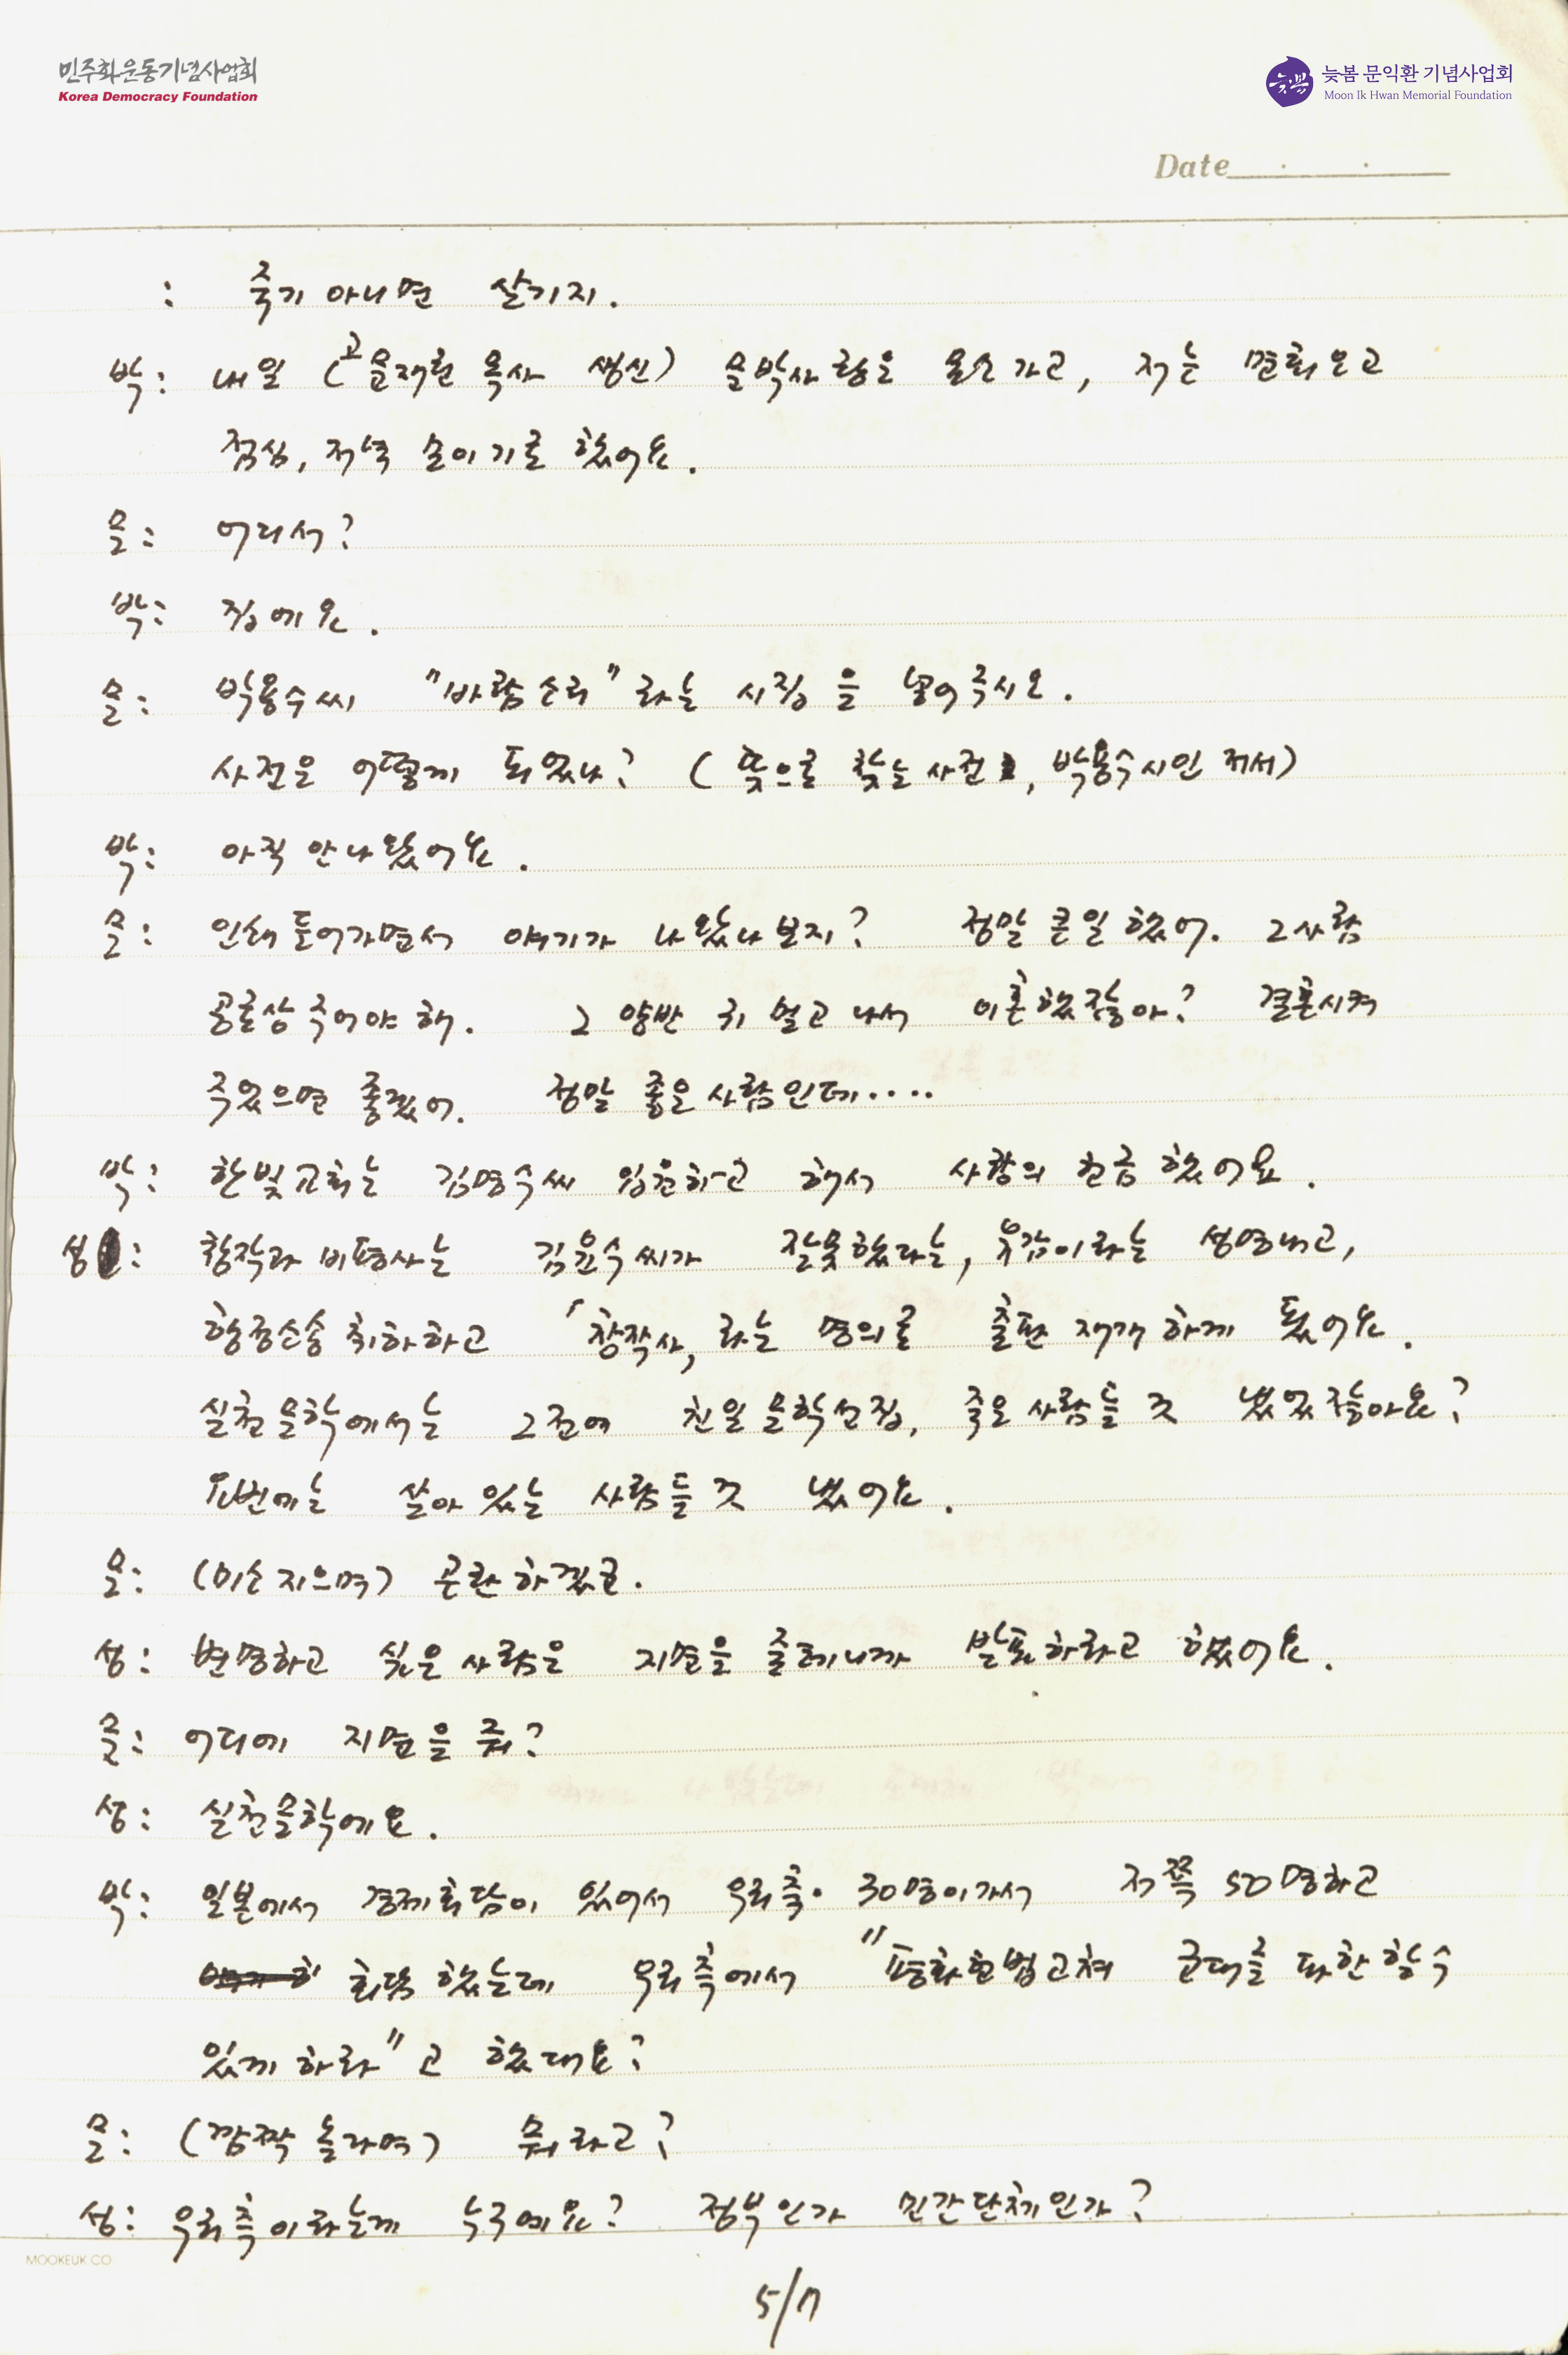 민주화운동기념사업회
Korea Democracy Foundation
늦봄 문익환 기념사업회
Moon Ik Hwan Memorial Foundation
늦봄
Date
: 죽기 아니면 살기지.
박: 내일 (고 문재린 목사 생신) 문박사랑은 산소 가고, 저는 면회오고
점심, 저녁 손이기로 했어요.
문: 어디서?
박: 집에요.
문: 박용수씨 "바람소리"라는 시집을 넣어주시오.
사전은 어떻게 되었나? (뜻으로 찾는 사전, 박용수시인 저서)
박: 아직 안나왔어요.
문: 인쇄 들어가면서 얘기가 나왔나보지? 정말 큰일 했어. 그사람
공로상 주어야 해. 그 양반 귀 멀고 나서 이혼했잖아? 결혼시켜
주었으면 좋겠어. 정말 좋은 사람인데....
박: 한빛교회는 김명수씨 입원하고 해서 사랑의 헌금 했어요.
성: 창작과 비평사는 김윤수씨가 잘못했다는, 유감이라는 성명내고,
행정소송 취하하고 「창작사」라는 명의로 출판 재개하게 됐어요.
실천문학에서는 그전에 친일문학선집, 죽은 사람들 것 냈었잖아요?
요번에는 살아 있는 사람들 것 냈어요.
문: (미소 지으며) 곤란하겠군.
성: 변명하고 싶은 사람은 지면을 줄테니까 발표하라고 했어요.
문: 어디에 지면을 줘?
성: 실천문학에요.
박: 일본에서 경제회담이 있어서 우리측 30명이가서 저쪽 50명하고
회담 했는데 우리측에서 "평화헌법고쳐 군대를 파한할수
있게 하라"고 했대요?
문: (깜짝 놀라며) 뭐라고?
성: 우리측이라는게 누구예요? 정부인가 민간단체인가?
MOOKEUK CO
5/7